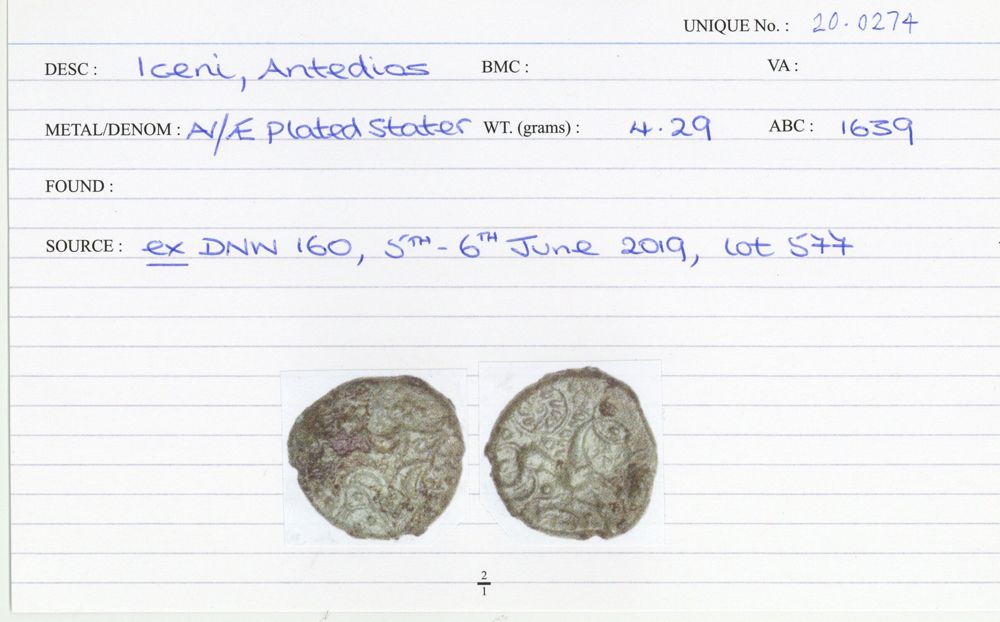 UNIQUE No. : 20.0274
DESC : Iceni, Antedios BMC : VA :
METAL/DENOM : AV/Æ Plated Stater WT. (grams) : 4.29 ABC : 1639
FOUND :
SOURCE : ex DNW 160, 5TH - 6TH June 2019, lot 577
2
1